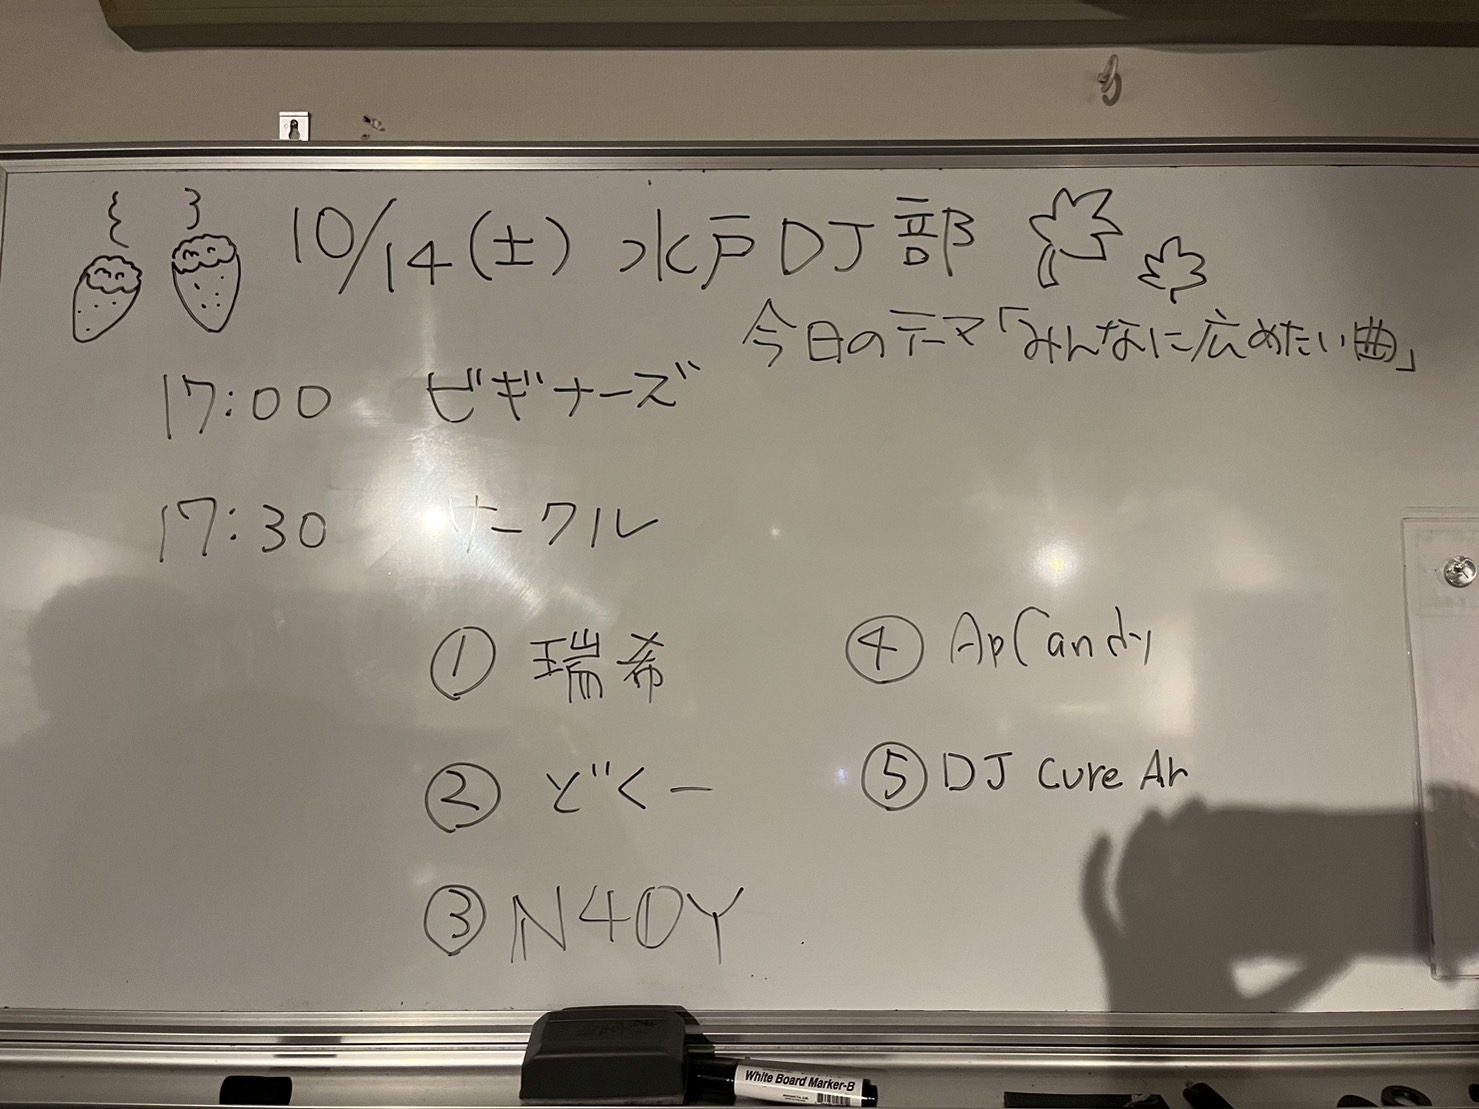 10/14(土) 水戸DJ部
今日のテーマ「みんなに広めたい曲」
17:00 ビギナーズ
17:30 サークル
① 瑞希
② どくー
③ N40Y
④ ApCandy
⑤ DJ cure An
White Board Marker-B